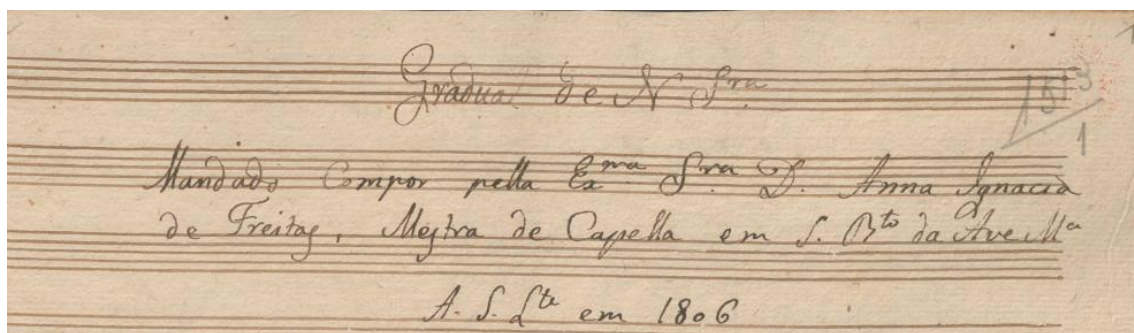 Gradual de N Sra
Mandado Compor pella Exma Sra D. Anna Ignacia
de Freitas, Mestra de Capella em S. Bto da Ave Ma
A. S. Lte em 1806